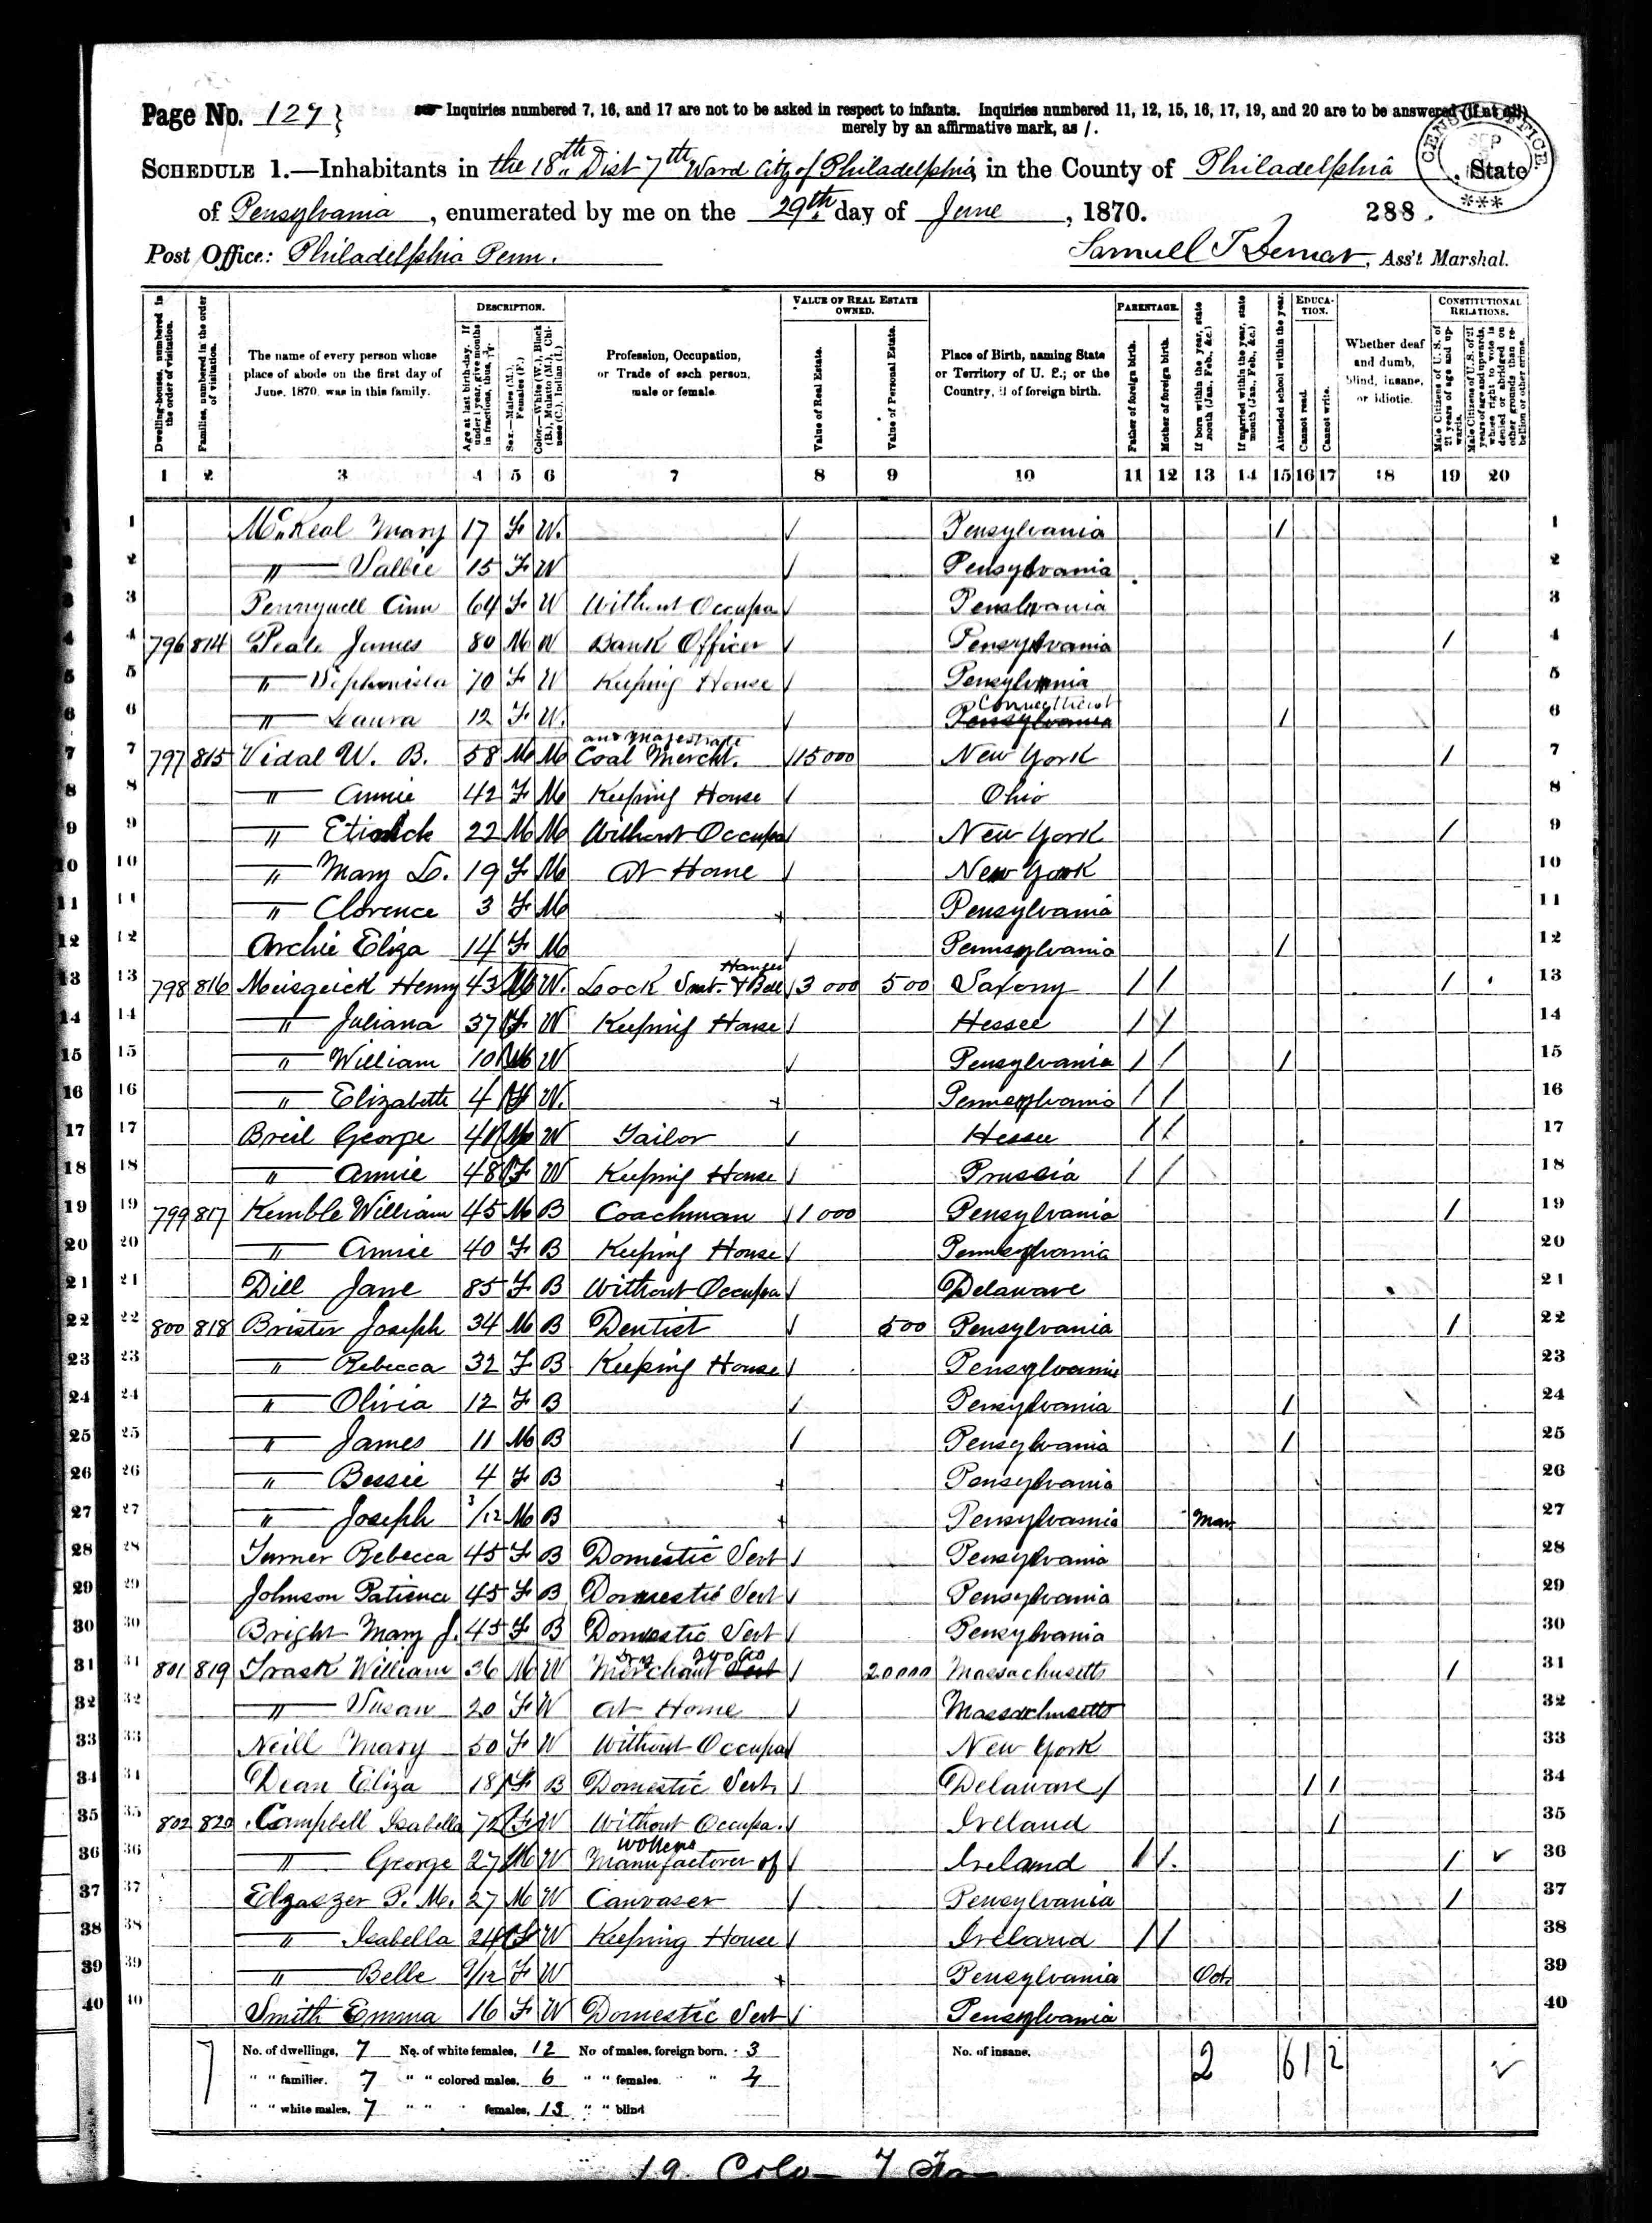 Page No. 127
Inquiries numbered 7, 16, and 17 are not to be asked in respect to infants. Inquiries numbered 11, 12, 15, 16, 17, 19, and 20 are to be answered (if at all)
merely by an affirmative mark, as /.
CENSUS OFFICE
SCHEDULE 1.—Inhabitants in the 18th Dist 7th Ward City of Philadelphia, in the County of Philadelphia, State
of Pensylvania, enumerated by me on the 29th day of June, 1870. 288.
Post Office: Philadelphia Penn. Samuell T, Ass't Marshal.
Dwelling-houses, numbered in the order of visitation.
Families, numbered in the order of visitation.
The name of every person whose place of abode on the first day of June, 1870, was in this family.
DESCRIPTION.
Age at last birth-day. If under 1 year, give months in fractions, thus, 3/12.
Sex.—Males (M.), Females (F.)
Color.—White (W.), Black (B.), Mulatto (M.), Chinese (C.), Indian (I.)
Profession, Occupation, or Trade of each person, male or female.
VALUE OF REAL ESTATE OWNED.
Value of Real Estate.
Value of Personal Estate.
Place of Birth, naming State or Territory of U. S.; or the Country, if of foreign birth.
PARENTAGE.
Father of foreign birth.
Mother of foreign birth.
If born within the year, state month (Jan., Feb., &c.)
If married within the year, state month (Jan., Feb., &c.)
Attended school within the year.
EDUCATION.
Cannot read.
Cannot write.
Whether deaf and dumb, blind, insane, or idiotic.
CONSTITUTIONAL RELATIONS.
Male Citizens of U. S. of 21 years of age and upwards.
Male Citizens of U. S. of 21 years of age and upwards, whose right to vote is denied or abridged on other grounds than rebellion or other crime.
1 2 3 4 5 6 7 8 9 10 11 12 13 14 15 16 17 18 19 20
1 McKeal Mary 17 F W. Pensylvania / 1
2 " Sallie 15 F W Pensylvania 2
3 Ann 64 F W Without Occupa Penslvania 3
4 796 814 Peale James 80 M W Bank Officer Pensylvania / 4
5 " 70 F W Keeping House Pensylvania 5
6 " Laura 12 F W. Connecticut Pensylvania / 6
7 797 815 Vidal W. B. 58 M M Coal Mercht. and Majestrate 15000 New York / 7
8 " Annie 42 F M Keeping House Ohio 8
9 " 22 M M Without Occupa New York / 9
10 " Mary L. 19 F M At Home New York 10
11 " Clorence 3 F M Pensylvania 11
12 Archie Eliza 14 F M Pennsylvania / 12
13 798 816 Henry 43 M W. Lock Smt. & Bell Hanger 3 000 500 Saxony / / / 13
14 " Juliana 37 F W Keeping House Hessee / / 14
15 " William 10 M W Pensylvania / / / 15
16 " Elizabeth 4 F W. Pennsylvania / / 16
17 Breil George 41 M W Tailor Hessee / / 17
18 " Annie 48 F W Keeping House Prussia / / 18
19 799 817 Kemble William 45 M B Coachman 1 000 Pensylvania / 19
20 " Annie 40 F B Keeping House Pennsylvania 20
21 Dill Jane 85 F B Without Occupa Delaware 21
22 800 818 Brister Joseph 34 M B Dentist 500 Pensylvania / 22
23 " Rebecca 32 F B Keeping House Pensylvania 23
24 " Olivia 12 F B Pensylvania / 24
25 " James 11 M B Pensylvania / 25
26 " Bessie 4 F B Pensylvania 26
27 " Joseph 3/12 M B Pensylvania Mar 27
28 Turner Rebecca 45 F B Domestic Sert Pensylvania 28
29 Johnson Patience 45 F B Domestic Sert Pensylvania 29
30 Bright Mary J. 45 F B Domestic Sert Pensylvania 30
31 801 819 Trask William 36 M W Dry Goods Merchant 20000 Massachusetts / 31
32 " Susan 20 F W At Home Massachusetts 32
33 Neill Mary 50 F W Without Occupa New York 33
34 Dean Eliza 18 F B Domestic Sert. Delaware / / / 34
35 802 820 Campbell Isabella 72 F W Without Occupa. Ireland / 35
36 " George 27 M W Manufacturer of Wollens Ireland / / / ✓ 36
37 Elzaszer P. M. 27 M W Canvaser Pensylvania / 37
38 " Isabella 24 F W Keeping House Ireland / / 38
39 " Belle 9/12 F W Pensylvania Oct. 39
40 Smith Emma 16 F W Domestic Sert Pensylvania 40
No. of dwellings, 7 No. of white females, 12 No of males, foreign born. 3 No. of insane. 2 6 1 2
" " families. 7 " " colored males. 6 " " females. " 4 ✓
" " white males, 7 " " " females, 13 " " blind
19 7